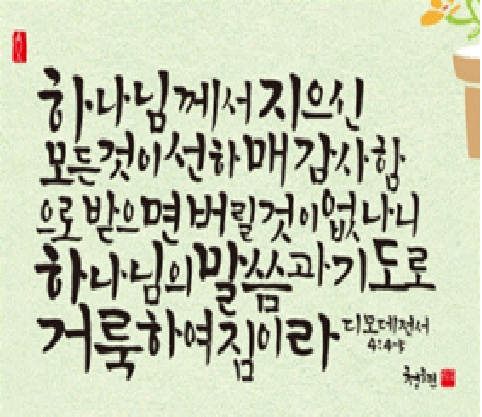 하나님께서 지으신
모든것이 선하매 감사함
으로 받으면 버릴것이 없나니
하나님의 말씀과 기도로
거룩하여짐이라 디모데전서
4:4~5